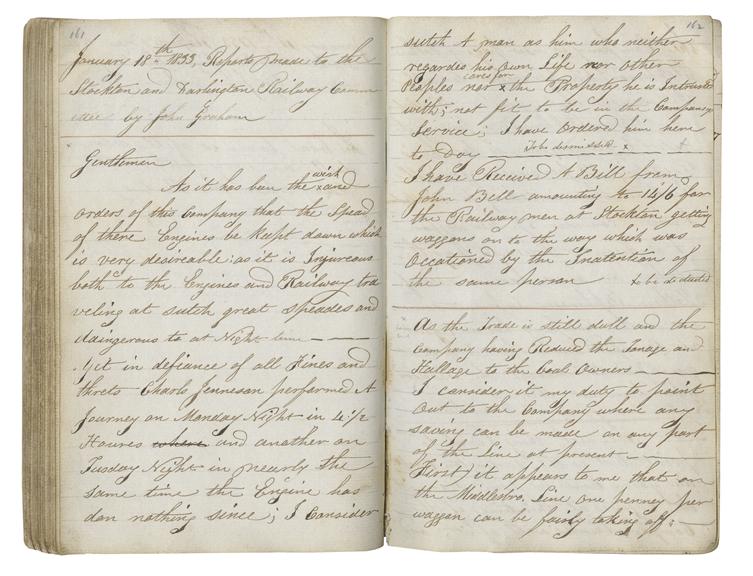 161
January 18th 1833, Reports made to the
Stockton and Darlington Railway Comm
ittee by John Graham
Gentlemen
As it has bun the wish x and
orders of this Company that the Spead
of there Engines be Keept down which
is very desireable: as it is Injureous
both to the Engines and Railway tra
veling at sutch great speades and
daingerous to at Night time — —
Yet in defiance of all Fines and
threts Charls Jenneson performed A
Journey on Monday Night in 4½
Houres where and another on
Tusday Night in nearly the
same time the Engine has
don nothing since; I Consider
162
sutch A man as him who neither
regardes his own Life nor other
Peoples nor cares for x the Property he is Intrusted
with; not fit to be in the Companys
Service; I have ordered him here
to Day — To be dismissed x
I have Received A Bill from
John Bell amounting to 14/6 for
the Railway men at Stockton getting
waggons on to the way which was
Occationed by the Inatention of
the same person x to be deducted
As the Trade is still dull and the
Company having Reduced the Tonage and
Stallage to the Coal Owners —
I consider it my duty to point
Out to the Company where any
saving can be made on any part
of the Line at present —
First) it appears to me that on
the Middlesbro. Line One penney per
waggon can be fairly taking off: —